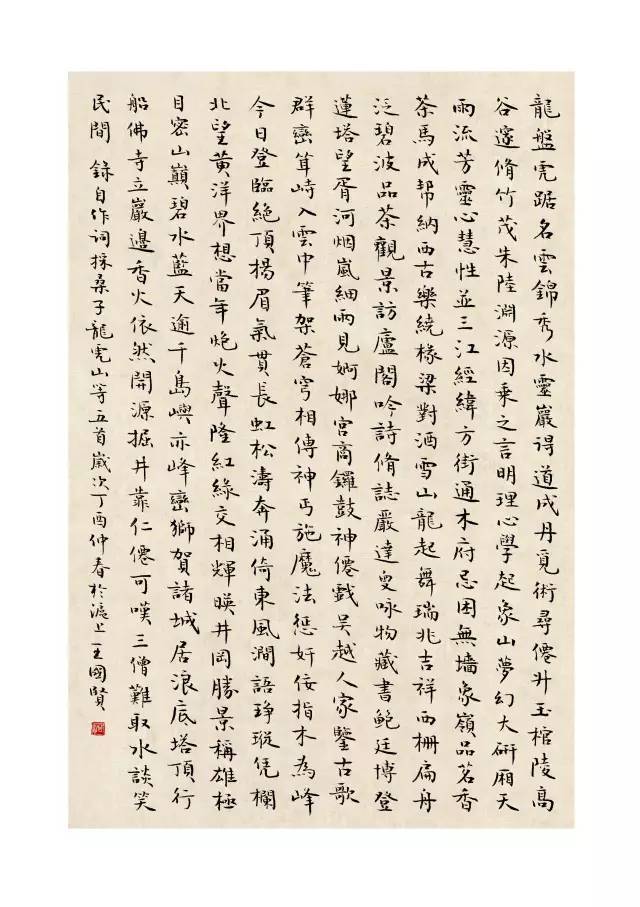 龍盤虎踞名雲錦秀水靈巖得道成丹覓術尋僊升玉棺陵高
谷邃脩竹茂朱陸淵源因乘之言明理心學起象山夢幻大研廂天
雨流芳靈心慧性並三江經緯方街通木府忌困無墙象嶺品茗香
茶馬成帮納西古樂繞椽梁對酒雪山龍起舞瑞兆吉祥西柵扁舟
泛碧波品茶觀景訪廬閣吟詩脩誌嚴達叟咏物藏書鮑廷博登
蓮塔望胥河烟嵐細雨見婀娜宫商鑼鼓神僊戲吴越人家鑒古歌
群巒耸峙入雲中筆架蒼穹相傳神丐施魔法懲奸佞指木為峰
今日登臨絶頂揚眉氣貫長虹松濤奔涌倚東風澗語琤瑽凭欄
北望黄洋界想當年炮火聲隆紅緑交相輝暎井岡勝景稱雄極
目密山巔碧水藍天逾千島嶼亦峰巒獅賀諸城居浪底塔頂行
船佛寺立巖邊香火依然開源掘井靠仁僊可嘆三僧難取水談笑
民間 錄自作词採桑子龍虎山等五首歲次丁酉仲春於滬上王國賢